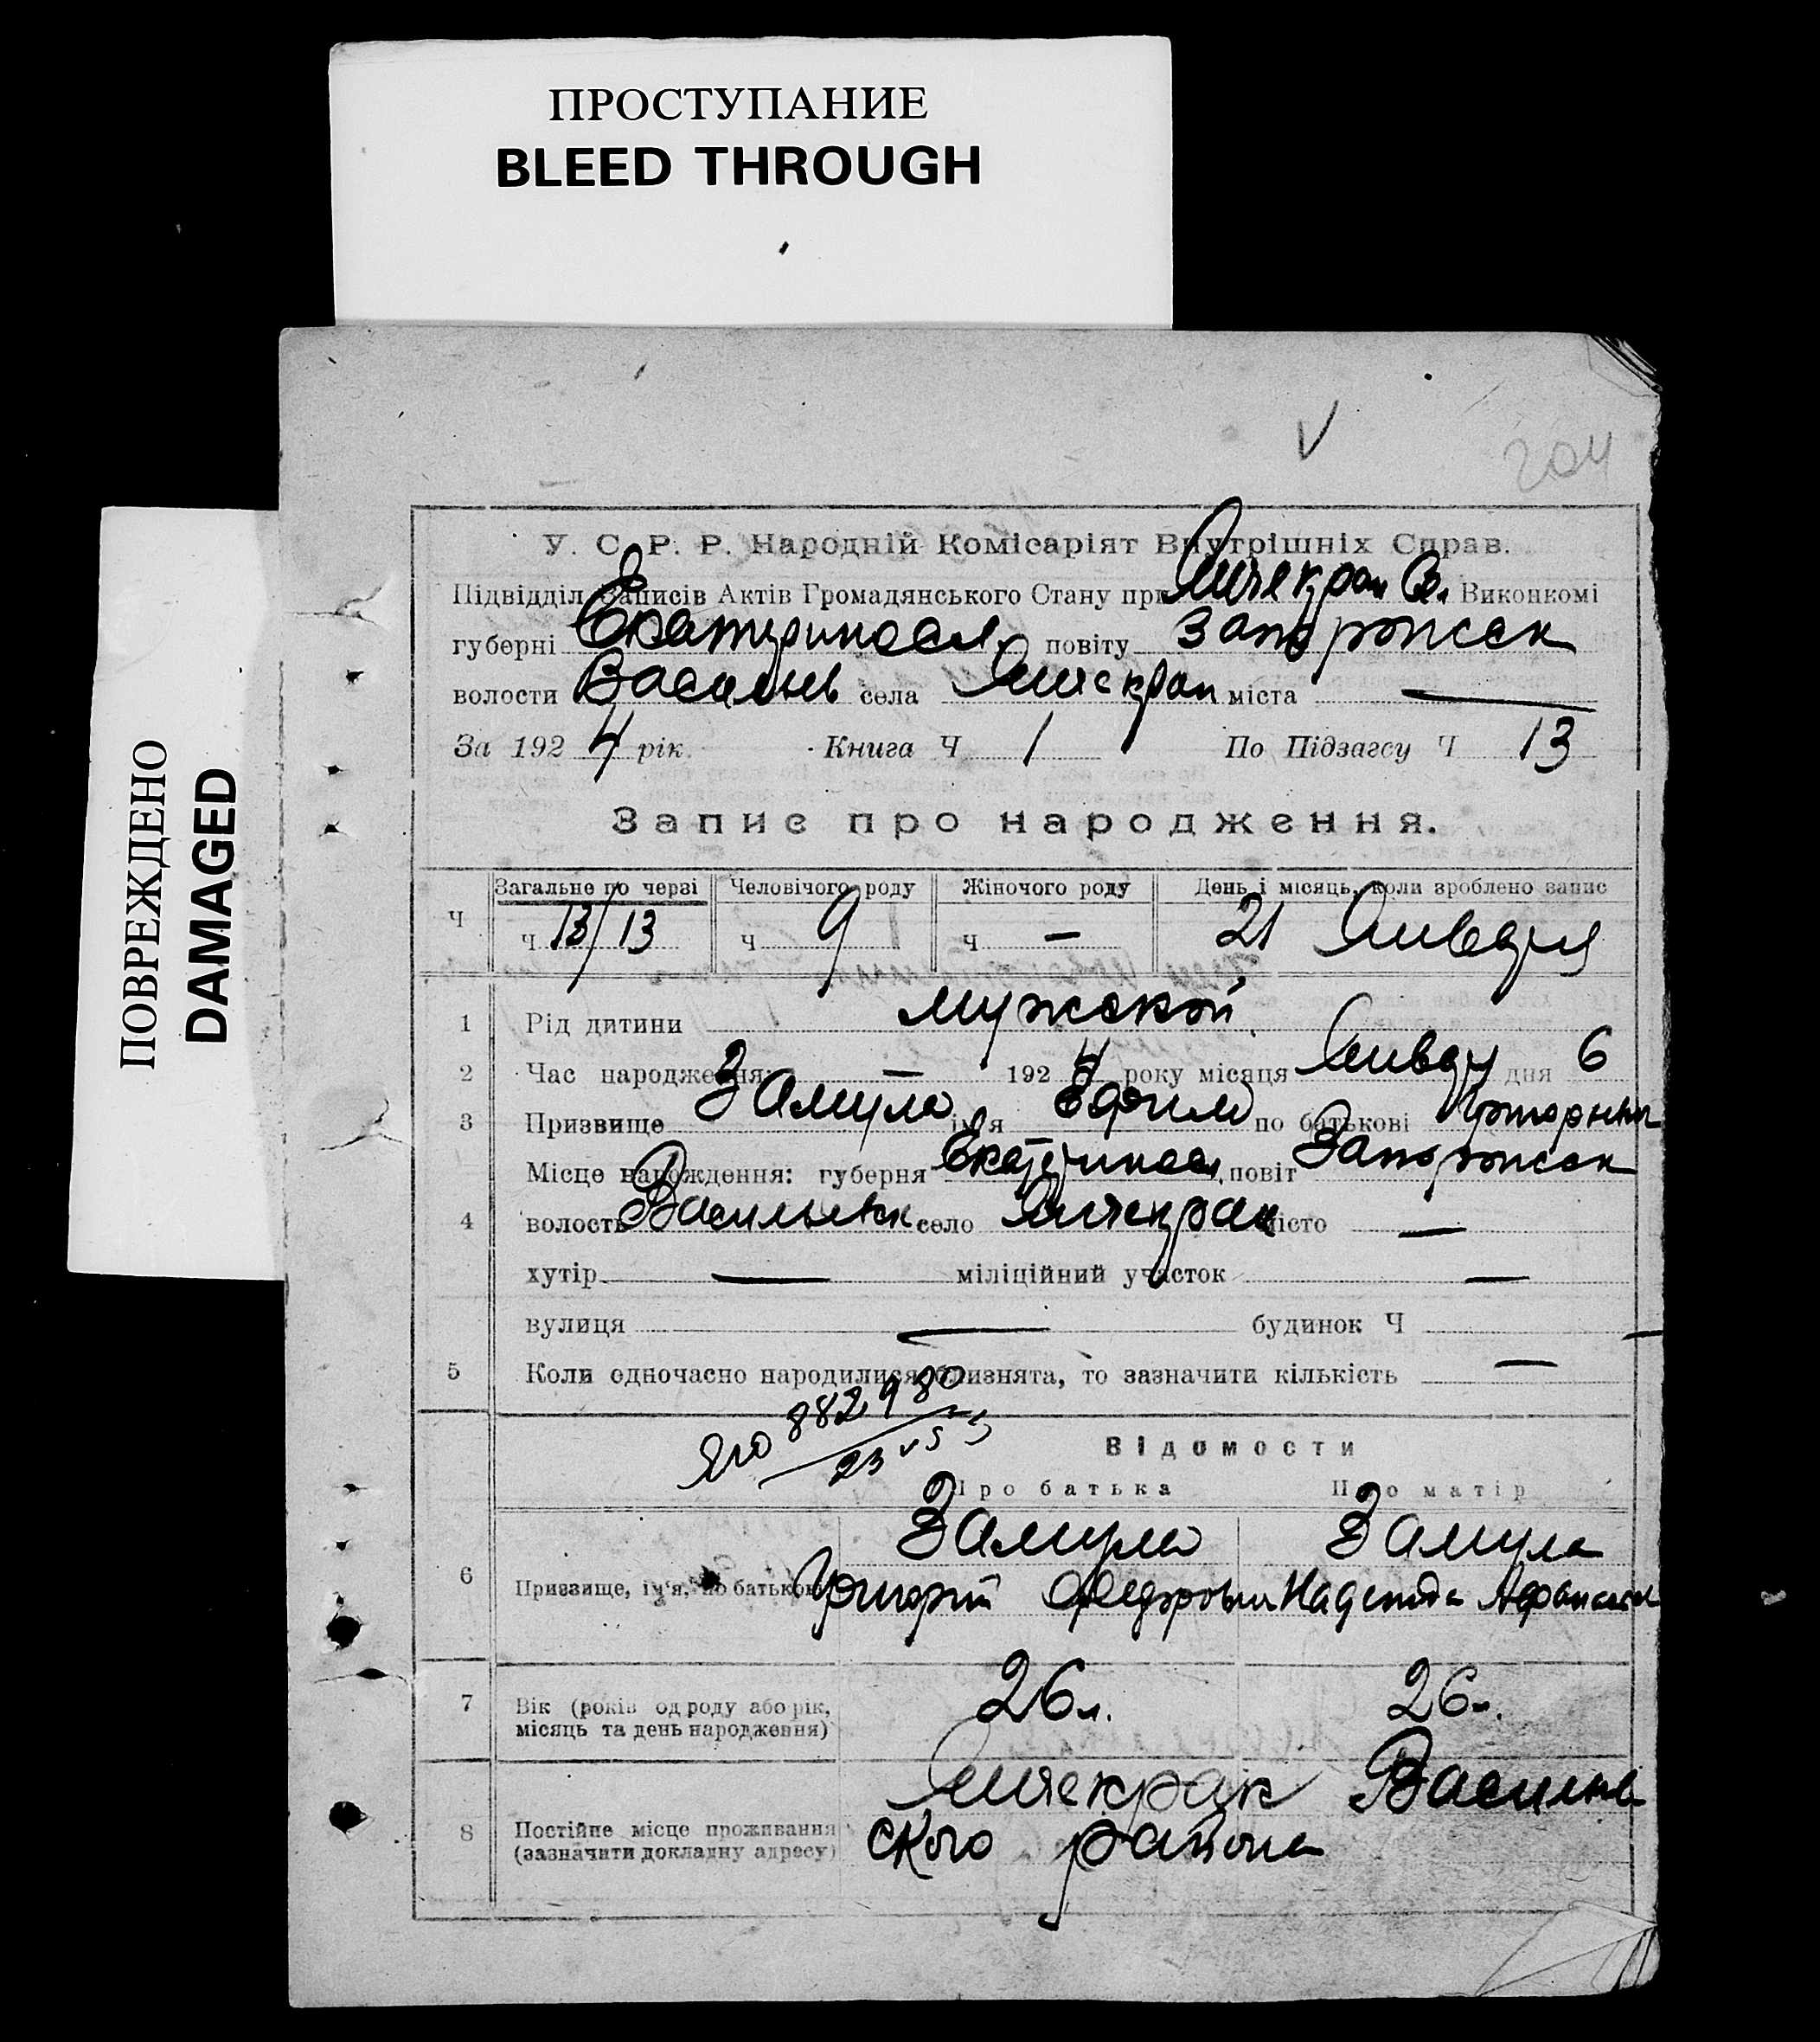 ПРОСТУПАНИЕ
BLEED THROUGH
ПОВРЕЖДЕНО
DAMAGED
204
У. С. Р. Р. Народній Комісаріят Внутрішніх Справ.
Підвідділ Записів Актів Громадянського Стану при Янчекрак Виконкомі
губерні Екатериносл. повіту Запорожск
волости Васильев села Янчекрак міста —
За 1924 рік. Книга Ч 1 По Підзагсу Ч 13
Запис про народження.
Загальне по черзі Человічого роду Жіночого роду День і місяць, коли зроблено запис
Ч ч 13/13 ч 9 ч — 21 Января
1 Рід дитини мужской
2 Час народження: — 1924 року місяця Январ дня 6
3 Призвище Замула ім'я Ефим по батькові
Місце нарождення: губерня Екатериносл. повіт Запорожск
4 волость Васильевск село Янчекрак місто —
хутір — міліційний участок —
вулиця — будинок Ч —
5 Коли одночасно народилися близнята, то зазначити кількість —
882980
23
Відомости
Про батька Про матір
Замула Замула
6 Призвище, ім'я, по батькові Григорий Федорович Надежда
7 Вік (років од роду або рік, 26 л. 26 л.
місяць та день народження)
Янчекрак Василье
8 Постійне місце проживання ского района
(зазначити докладну адресу)